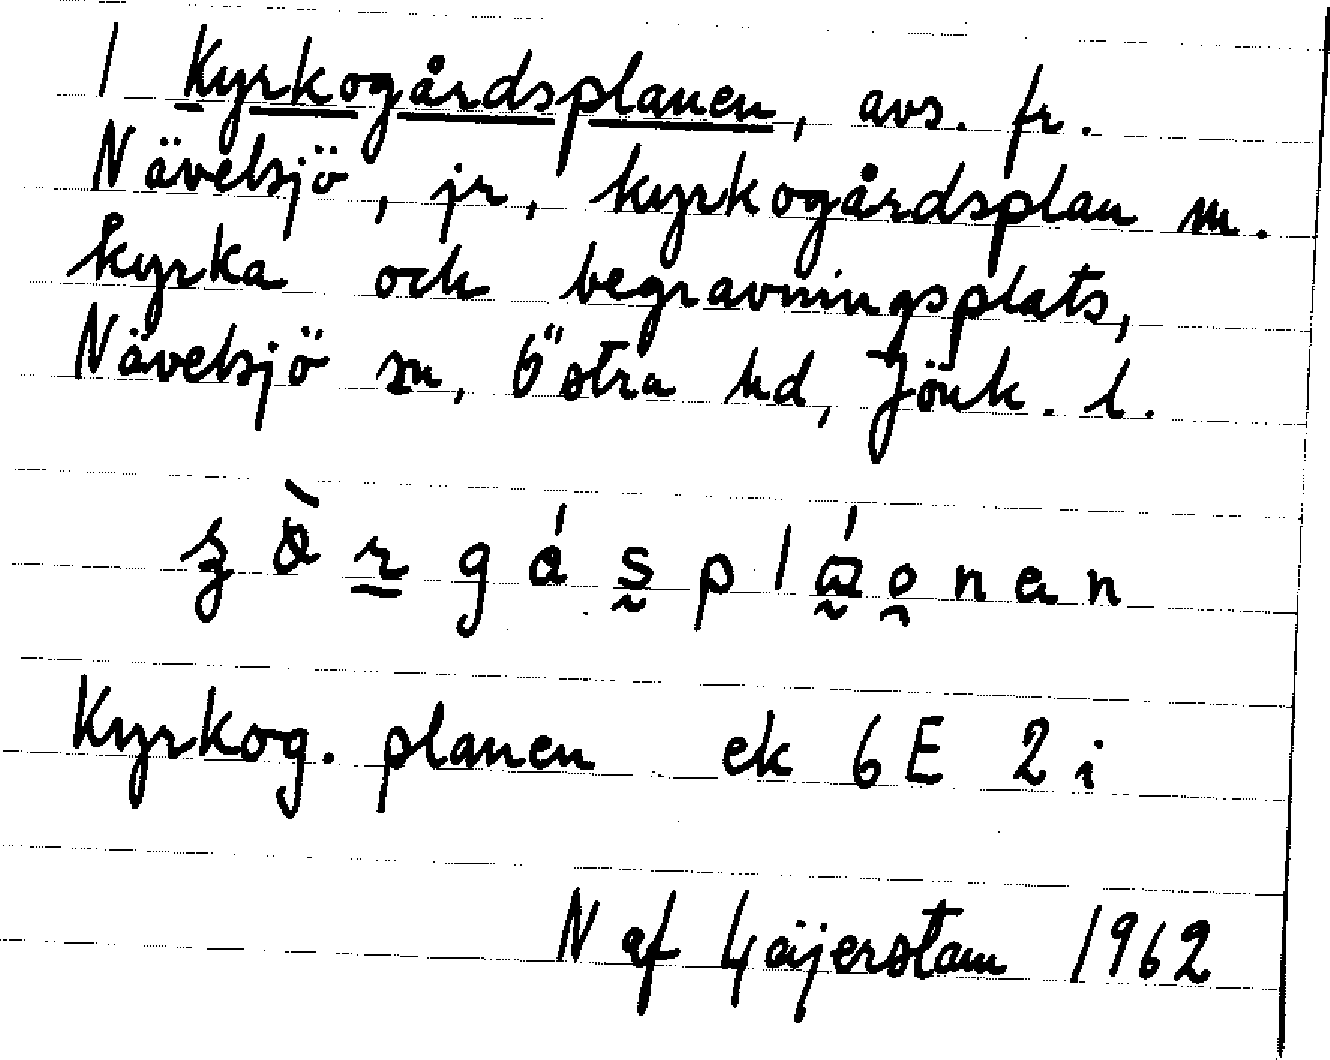 1 Kyrkogårdsplanen, avs. fr.
Nävelsjö, jr, kyrkogårdsplan m.
kyrka och begravningsplats,
Nävelsjö sn, Östra hd, Jönk. l.
Kyrkog. planen ek 6E 2i
N af Gäijerstam 1962